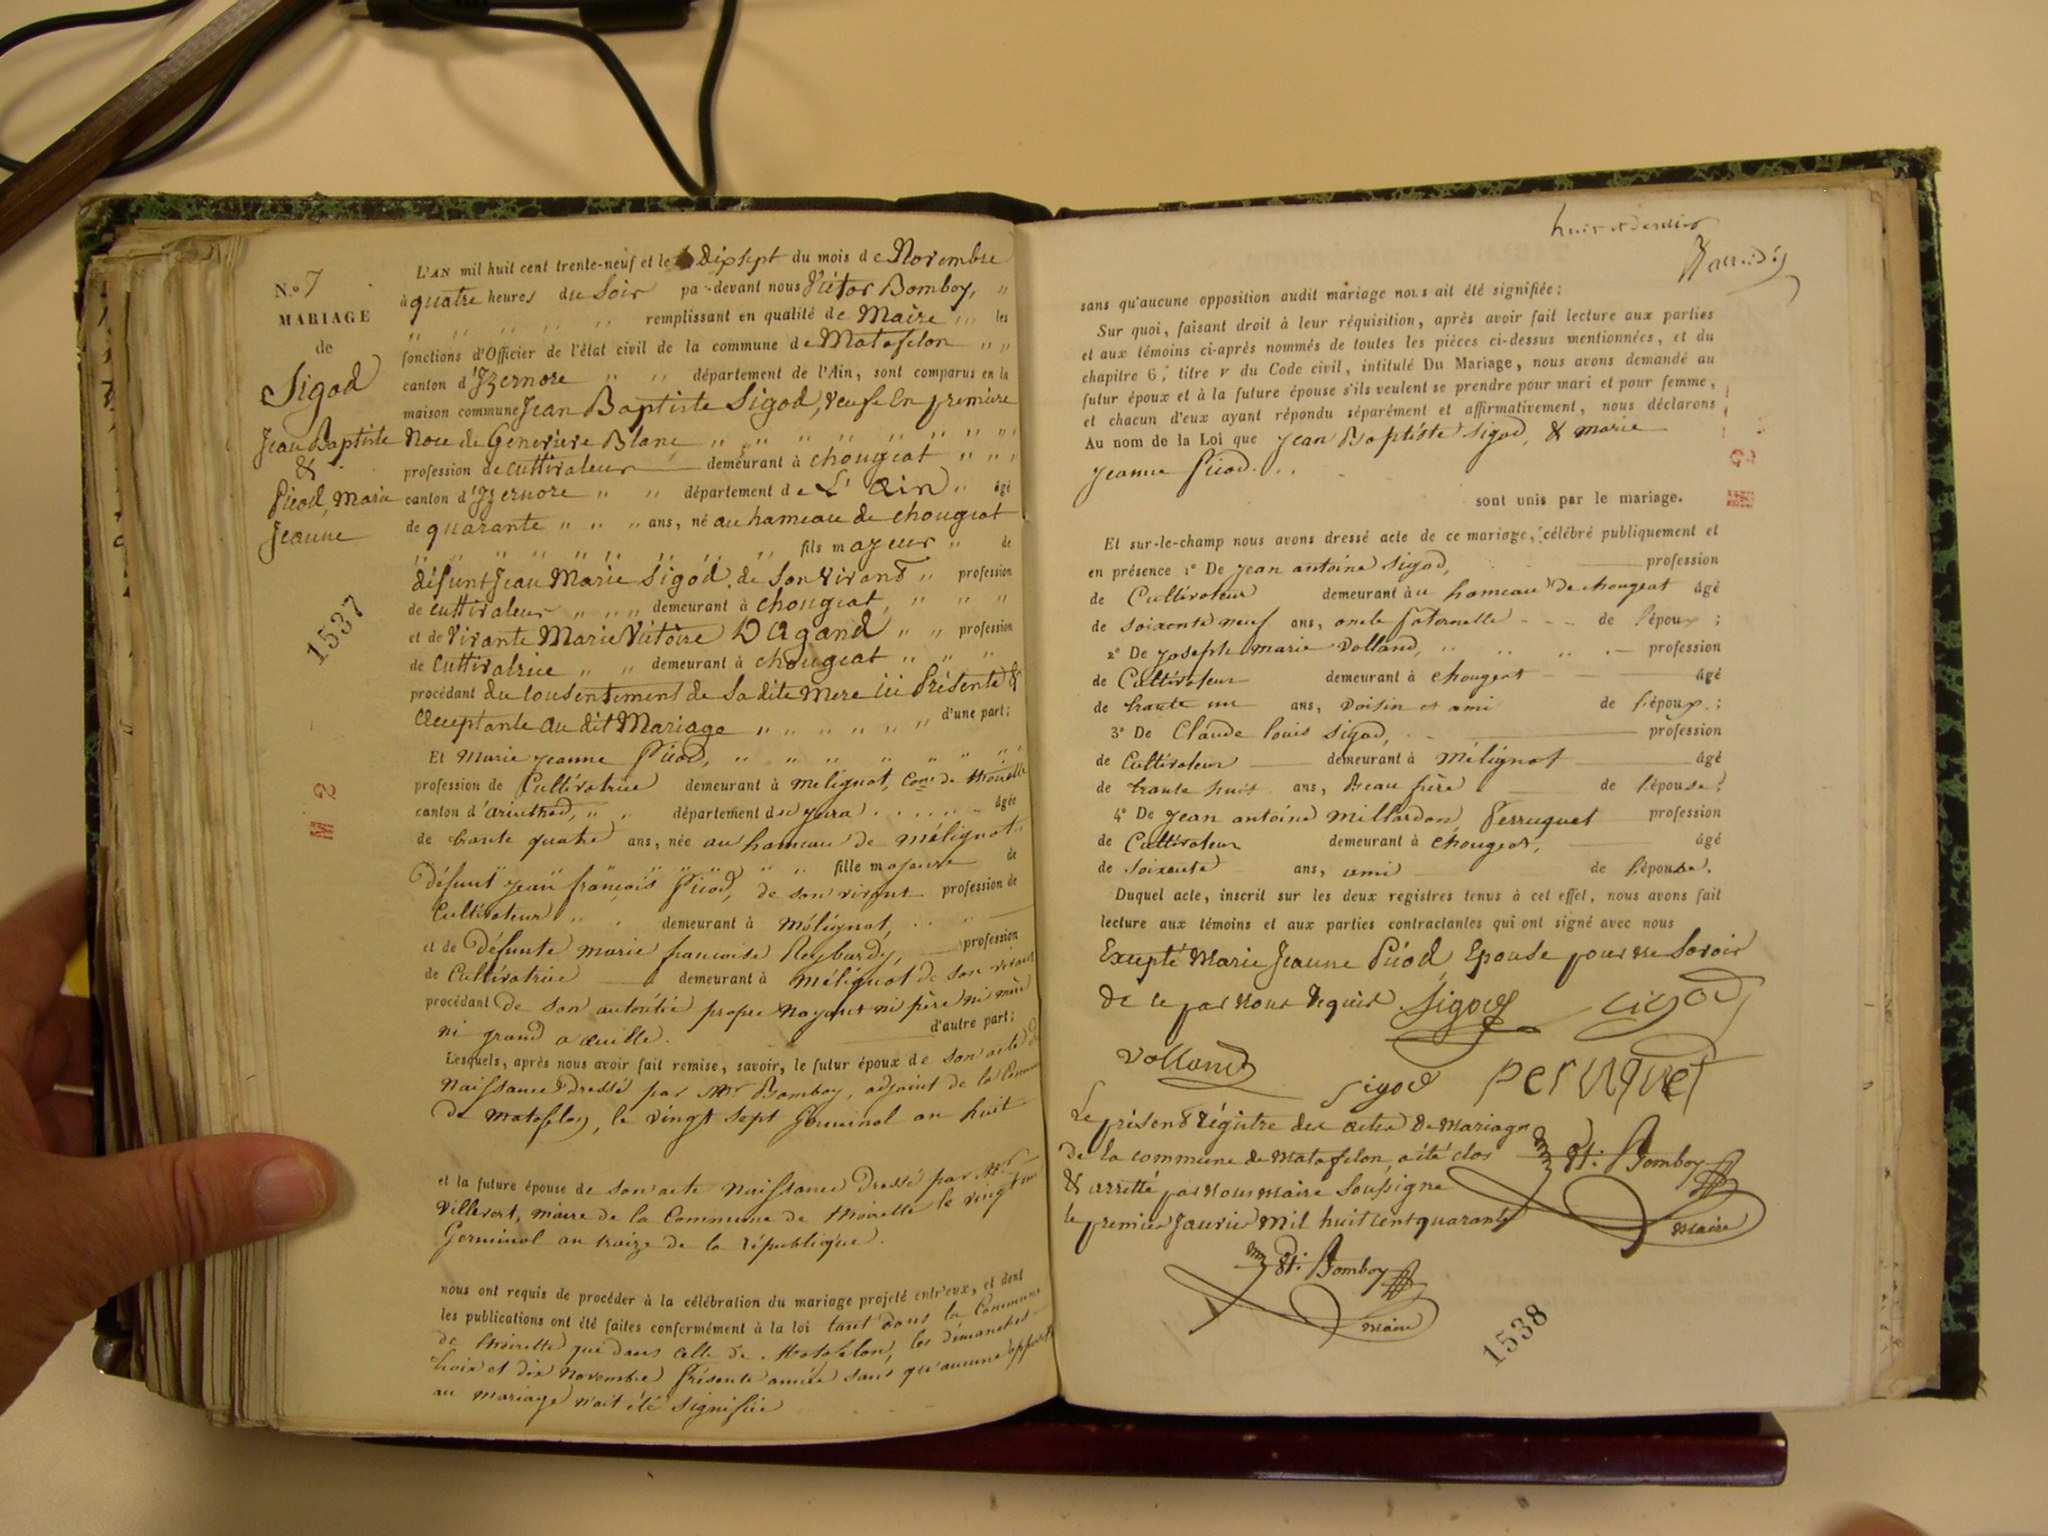 N.o 7
MARIAGE
de
Sigod
Jean Baptiste
&
Picod, Marie
Jeanne
1537
M 2
L'AN mil huit cent trente-neuf et le Dixsept du mois de Novembre
à quatre heures du Soir par-devant nous Victor Bomboy, "
" " " " " " remplissant en qualité de Maire " " les
fonctions d'Officier de l'état civil de la commune de Matafelon " "
canton d'Izernore " " département de l'Ain, sont comparus en la
maison commune Jean Baptiste Sigod, veuf En premiere
Noce de Genevieve Blanc " " " " " " " "
profession de cultivateur demeurant à chougeat " " "
canton d'Izernore " " département de L'Ain " âgé
de quarante " " " ans, né au hameau de chougeat
" " " " " " " " " fils majeur " de
défunt Jean Marie Sigod, de Son vivant " profession
de cultivateur " " " demeurant à chougeat, " " "
et de vivante Marie Victoire DAgand " " profession
de Cultivatrice " " demeurant à chougeat " " "
procédant du consentement de Sadite Mere ici Présente &
Acceptante au dit Mariage " " " " " " d'une part;
Et Marie Jeanne Picod, " " " " " " "
profession de Cultivatrice demeurant à Melignat, Cone de thoirette
canton d'arinthod, " " département du Jura . . . . . âgée
de trante quatre ans, née au hameau de Mélignat
" " " " " " " fille majeure de
Défunt Jean françois Picod, de son vivant profession de
Cultivateur " " demeurant à Mélignat, . . "
et de Défunte marie francoise Reybardy, profession
de Cultivatrice demeurant à Mélignat de son vivant
procédant de son autorité propre Nayant ni père ni mère
ni grand a œuille. d'autre part;
Lesquels, après nous avoir fait remise, savoir, le futur époux de son acte de
Naissance Dressé par Mr Bomboy, adjoint de la Commune
de Matafelon, le vingt sept Germinal an huit
et la future épouse de son acte Naissance Dressé par Mr
Villevert, maire de la Commune de thoirette le vingt un
Germinal an traize de la république.
nous ont requis de procéder à la célébration du mariage projeté entr'eux, et dont
les publications ont été faites conformément à la loi tant dans la Commune
de thoirette que dans celle de Matafelon, les dimanches
trois et dix Novembre Présente année sans qu'aucune opposition
au mariage n'ait été signifiée
huit et dernier
sans qu'aucune opposition audit mariage nous ait été signifiée;
Sur quoi, faisant droit à leur réquisition, après avoir fait lecture aux parties
et aux témoins ci-après nommés de toutes les pièces ci-dessus mentionnées, et du
chapitre 6, titre v du Code civil, intitulé Du Mariage, nous avons demandé au
futur époux et à la future épouse s'ils veulent se prendre pour mari et pour femme,
et chacun d'eux ayant répondu séparément et affirmativement, nous déclarons
Au nom de la Loi que Jean Baptiste Sigod, & marie
Jeanne Picod. . .
sont unis par le mariage.
Et sur-le-champ nous avons dressé acte de ce mariage, célébré publiquement et
en présence 1° De Jean antoine Sigod, profession
de Cultivateur demeurant au hameau de chougeat âgé
de soixente neuf ans, oncle paternelle - - - de l'époux;
2° De Joseph marie Volland, " " " " profession
de Cultivateur demeurant à chougeat âgé
de trante un ans, voisin et ami de l'époux;
3° De Claude louis Sigod, profession
de Cultivateur demeurant à Mélignat âgé
de trante huit ans, Beau frère de l'épouse;
4° De Jean antoine Millardon Perruquet profession
de Cultivateur demeurant à chougeat, âgé
de soixente ans, ami de l'épouse.
Duquel acte, inscrit sur les deux registres tenus à cet effet, nous avons fait
lecture aux témoins et aux parties contractantes qui ont signé avec nous
Excepté Marie Jeanne Picod, Epouse pour ne Savoir
de ce par Nous Requise Sigod Sigod
Volland Sigod PerUqUet
Le présent Régistre des actes De Mariage
De la commune de Matafelon, a été clos
& arretté par Nous Maire Soussigné
le premier Janvier Mil huit cent quarante
Vt. Bomboy
Maire
Vt. Bomboy
Maire
1538